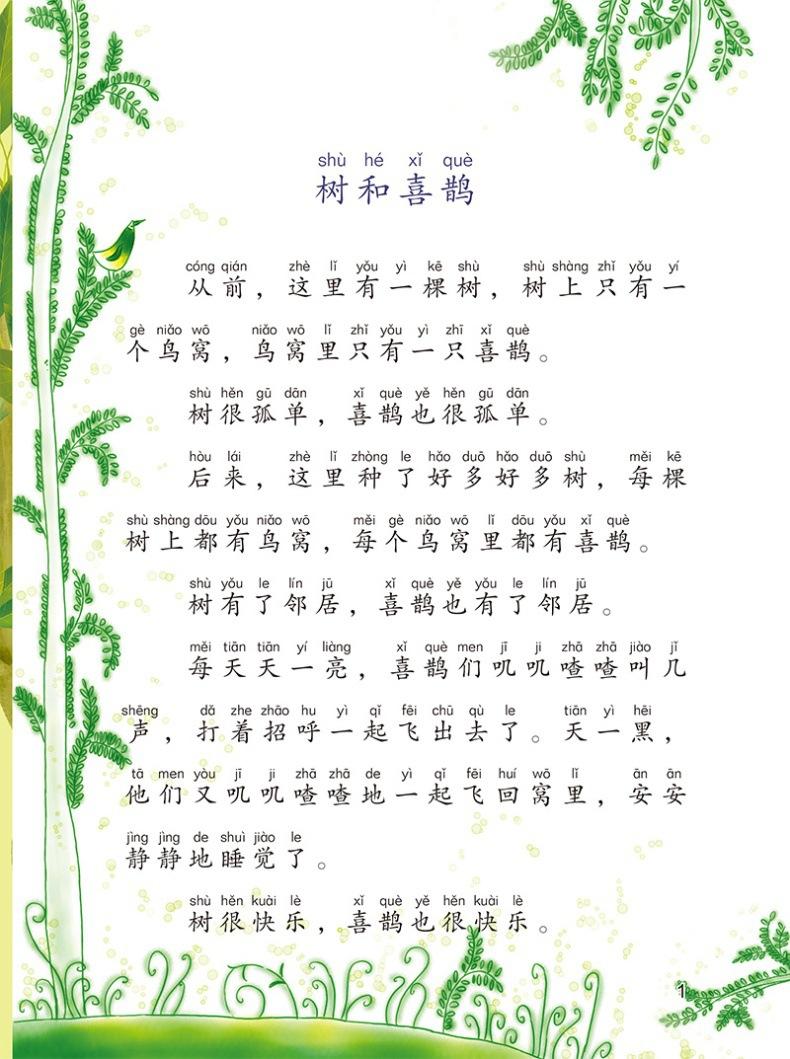 shù hé xǐ què
树和喜鹊
cóng qián zhè lǐ yǒu yì kē shù shù shàng zhǐ yǒu yí
从前，这里有一棵树，树上只有一
gè niǎo wō niǎo wō lǐ zhǐ yǒu yì zhī xǐ què
个鸟窝，鸟窝里只有一只喜鹊。
shù hěn gū dān xǐ què yě hěn gū dān
树很孤单，喜鹊也很孤单。
hòu lái zhè lǐ zhòng le hǎo duō hǎo duō shù měi kē
后来，这里种了好多好多树，每棵
shù shàng dōu yǒu niǎo wō měi gè niǎo wō lǐ dōu yǒu xǐ què
树上都有鸟窝，每个鸟窝里都有喜鹊。
shù yǒu le lín jū xǐ què yě yǒu le lín jū
树有了邻居，喜鹊也有了邻居。
měi tiān tiān yí liàng xǐ què men jī ji zhā zhā jiào jǐ
每天天一亮，喜鹊们叽叽喳喳叫几
shēng dǎ zhe zhāo hu yì qǐ fēi chū qù le tiān yì hēi
声，打着招呼一起飞出去了。天一黑，
tā men yòu jī ji zhā zhā de yì qǐ fēi huí wō lǐ ān ān
他们又叽叽喳喳地一起飞回窝里，安安
jìng jìng de shuì jiào le
静静地睡觉了。
shù hěn kuài lè xǐ què yě hěn kuài lè
树很快乐，喜鹊也很快乐。
1